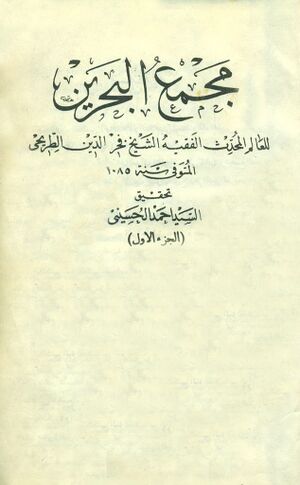 مجمع البحرين
للعالم المحدث الفقيه الشيخ فخر الدين الطريحي
المتوفى سنة ١٠٨٥
تحقيق
السيد احمد الحسيني
(الجزء الاول)